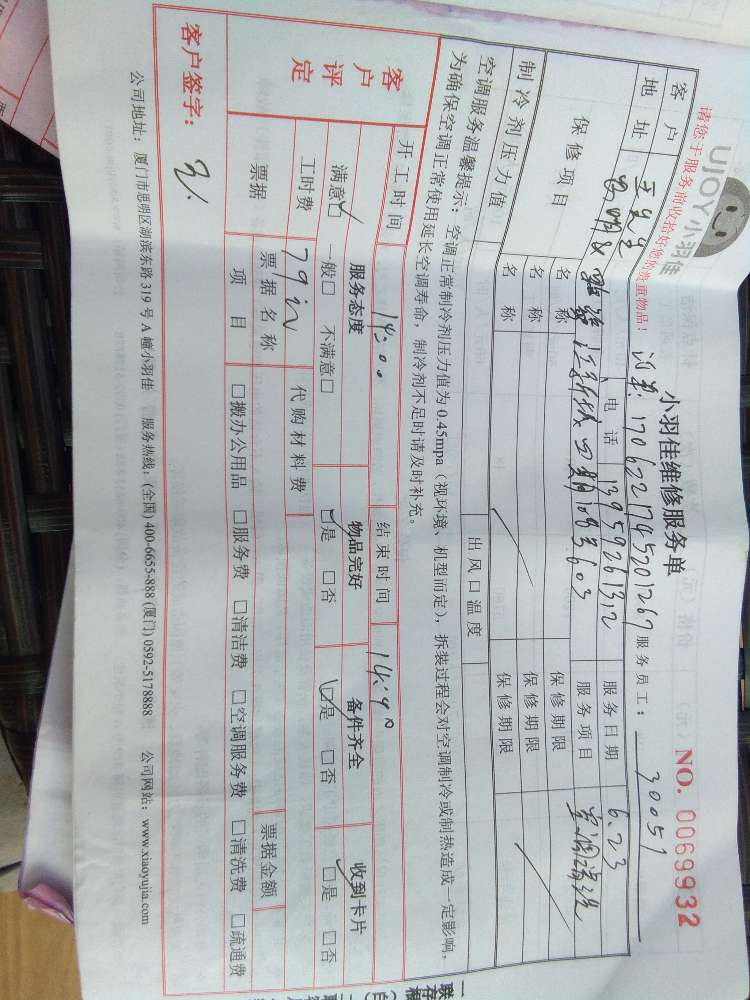 UJOY小羽佳
小羽佳维修服务单
NO. 0069932
请您于服务前收拾好您的贵重物品!
170622174520126 服务员工: 30051
客户 王先生 电话 13959261312 服务日期 6.23
地址 四期 603 服务项目 空调清洗
保修项目 名称 保修期限
名称 保修期限
名称 保修期限
制冷剂压力值 出风口温度
空调服务温馨提示:空调正常制冷剂压力值为0.45mpa(视环境、机型而定),拆装过程会对空调制冷或制热造成一定影响,
为确保空调正常使用延长空调寿命,制冷剂不足时请及时补充。
开工时间 14:00 结束时间 14:40
客户评定
服务态度 物品完好 备件齐全 收到卡片
满意☑ 一般□ 不满意□ ☑是 □否 ☑是 □否 ☑是 □否
工时费 代购材料费
票据 票据名称 票据金额
项目 □搬办公用品 □服务费 □清洁费 □空调服务费 □清洗费 □疏通费
客户签字:
公司地址:厦门市思明区湖滨东路319号A幢小羽佳 服务热线:(全国)400-6655-888 (厦门)0592-5178888 公司网站:www.xiaoyujia.com